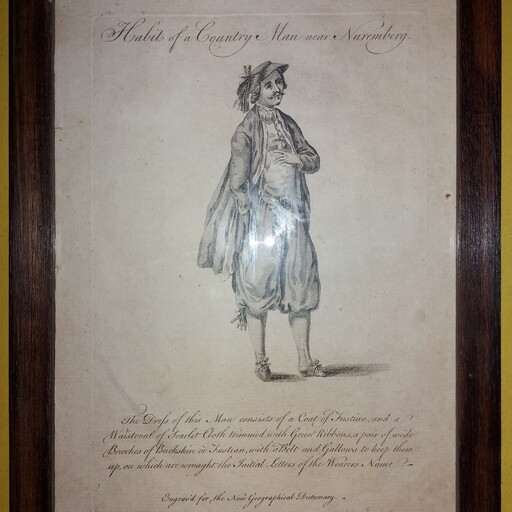 Habit of a Country Man near Nuremberg.
The Dress of this Man consists of a Coat of Fustian, and a
Waistcoat of Scarlet Cloth trimmed with Green Ribbons, a pair of wide
Breeches of Buckskin or Fustian, with a Belt and Gallows to keep them
up, on which are wrought the Initial Letters of the Wearers Name.
Engrav'd for the New Geographical Dictionary.